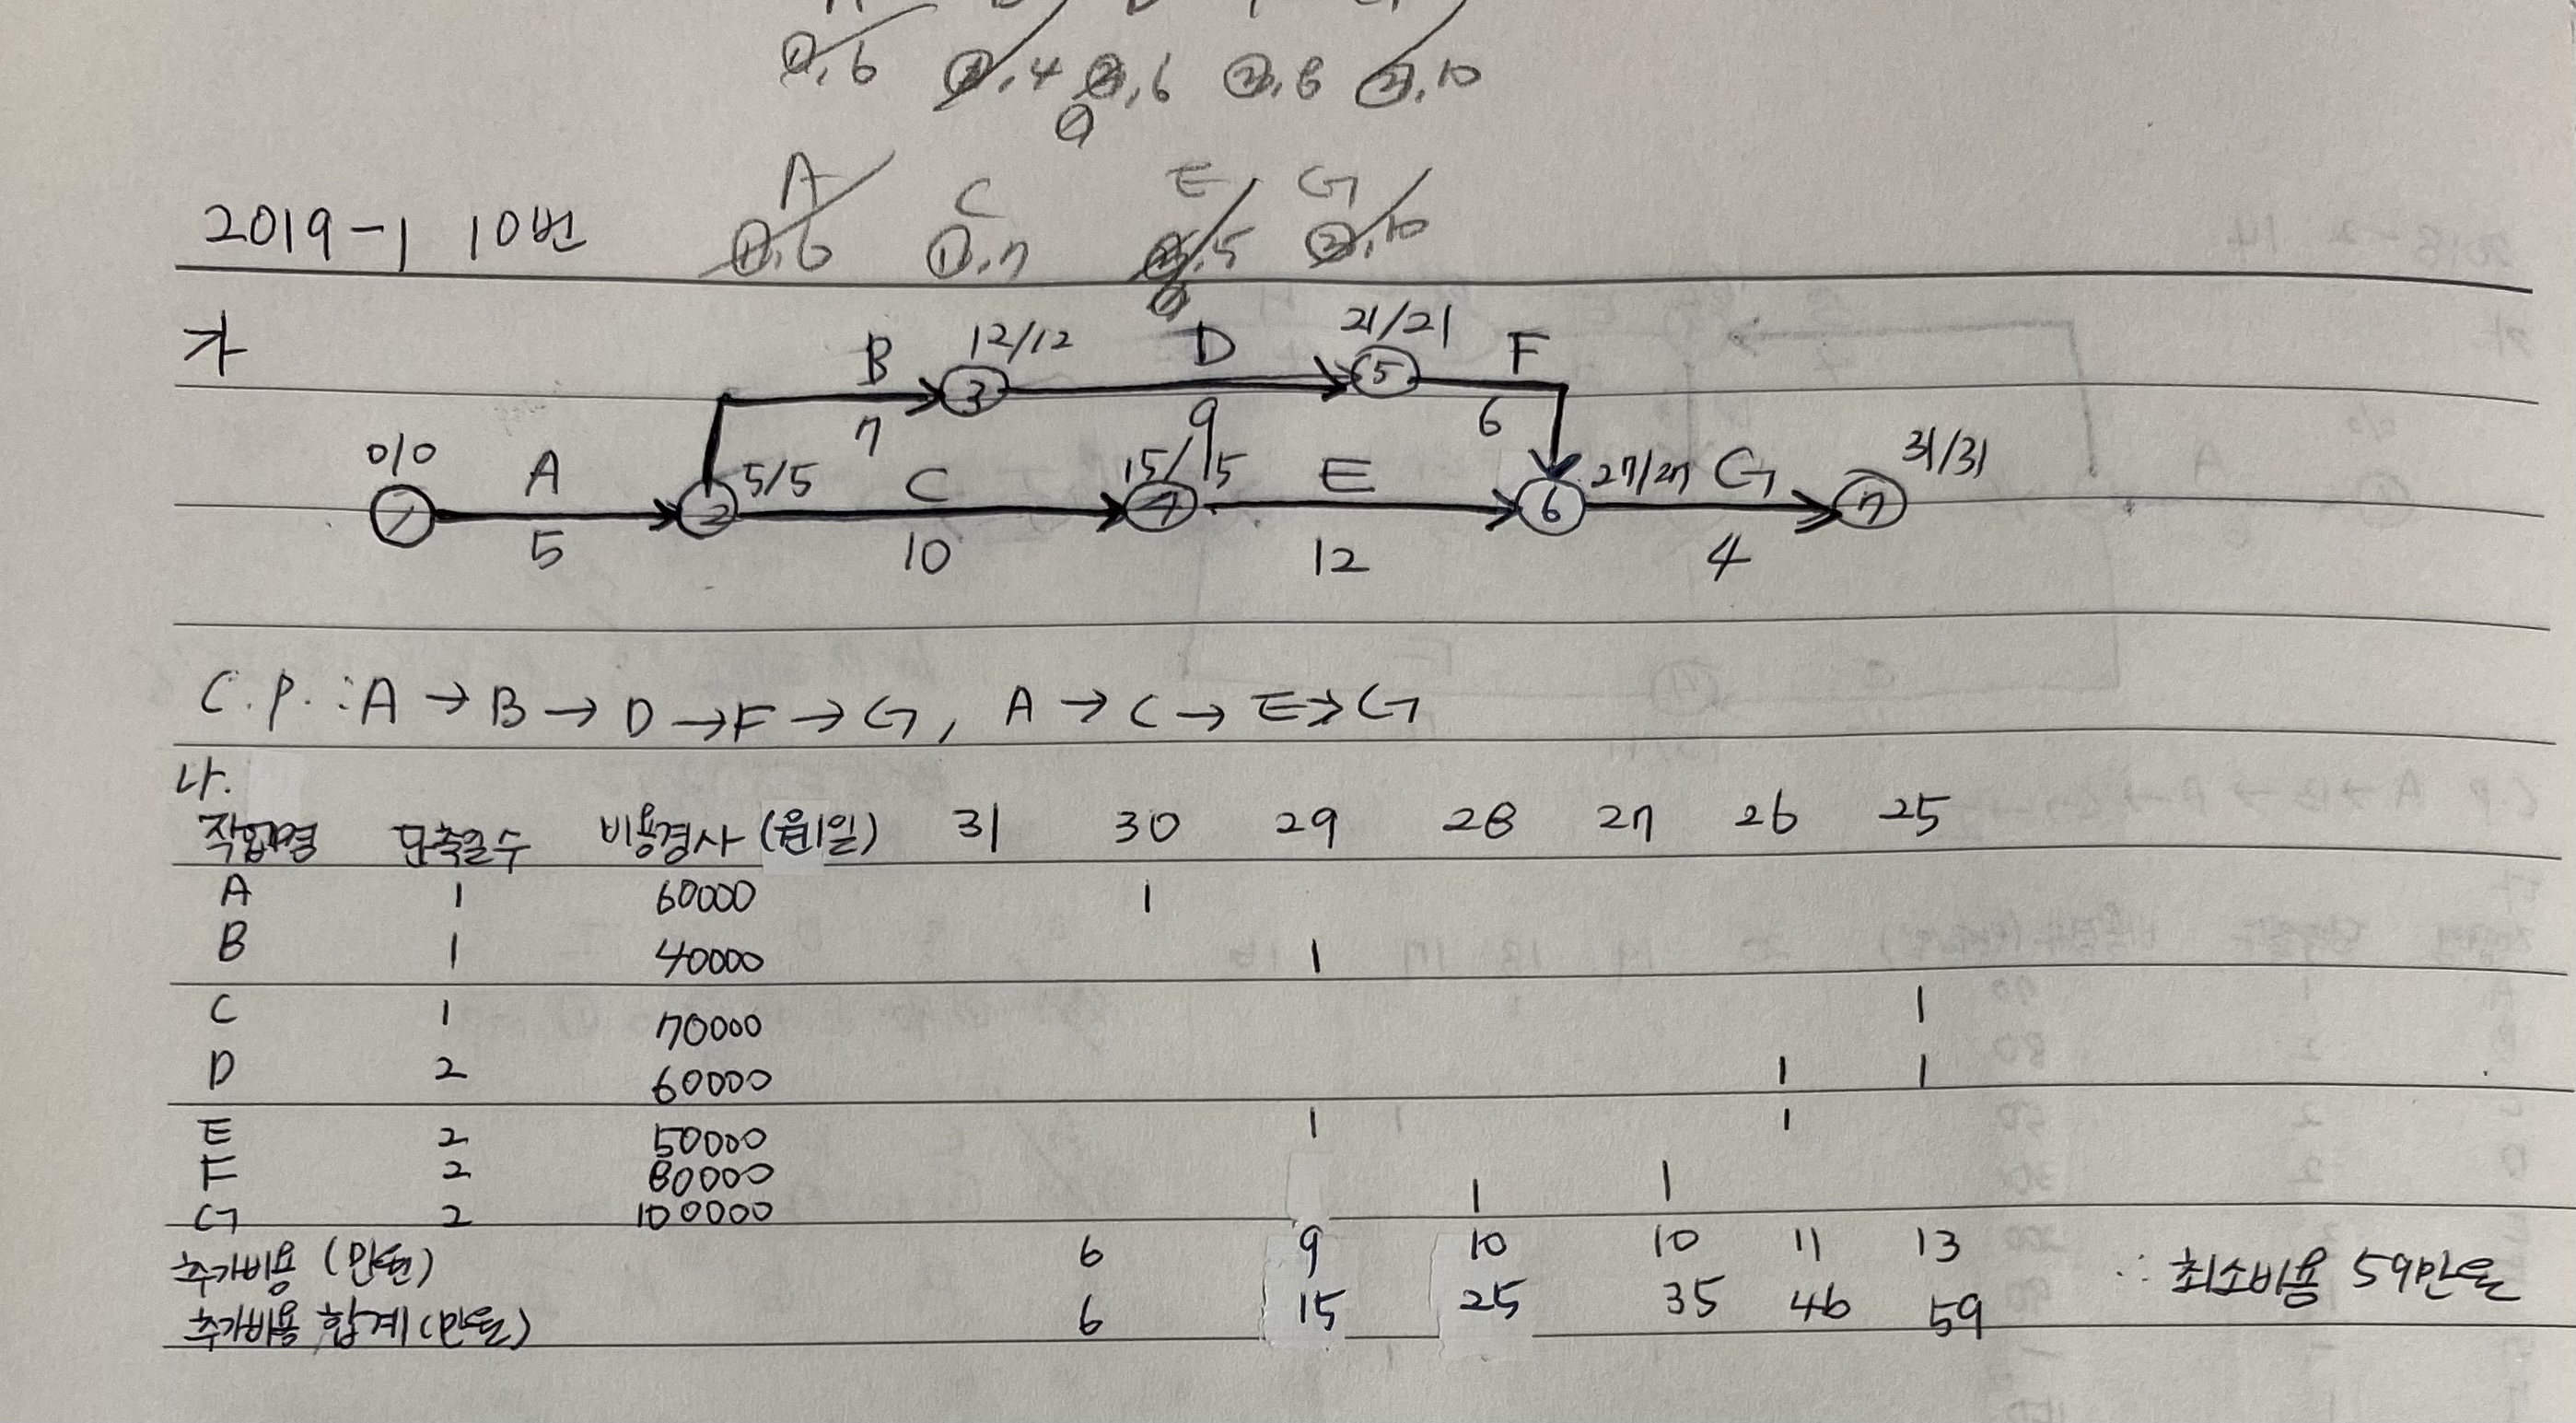 ①, 6 ①, 4 ②, 6 ②, 8 ②, 10
①
A C E G
2019-1 10번 ①, 6 ①, 7 ②, 5 ②, 10
①
가
B 12/12 D 21/21 F
③ ⑤
7 9 6
0/0 A 5/5 C 15/15 E 27/27 G 31/31
① ② ④ ⑥ ⑦
5 10 12 4
C.P. : A → B → D → F → G, A → C → E → G
나.
작업명 단축일수 비용경사 (원/일) 31 30 29 28 27 26 25
A 1 60000 1
B 1 40000 1
C 1 70000 1
D 2 60000 1 1
E 2 50000 1 1
F 2 80000
G 2 100000 1 1
추가비용 (만원) 6 9 10 10 11 13
추가비용 합계(만원) 6 15 25 35 46 59
∴ 최소비용 59만원